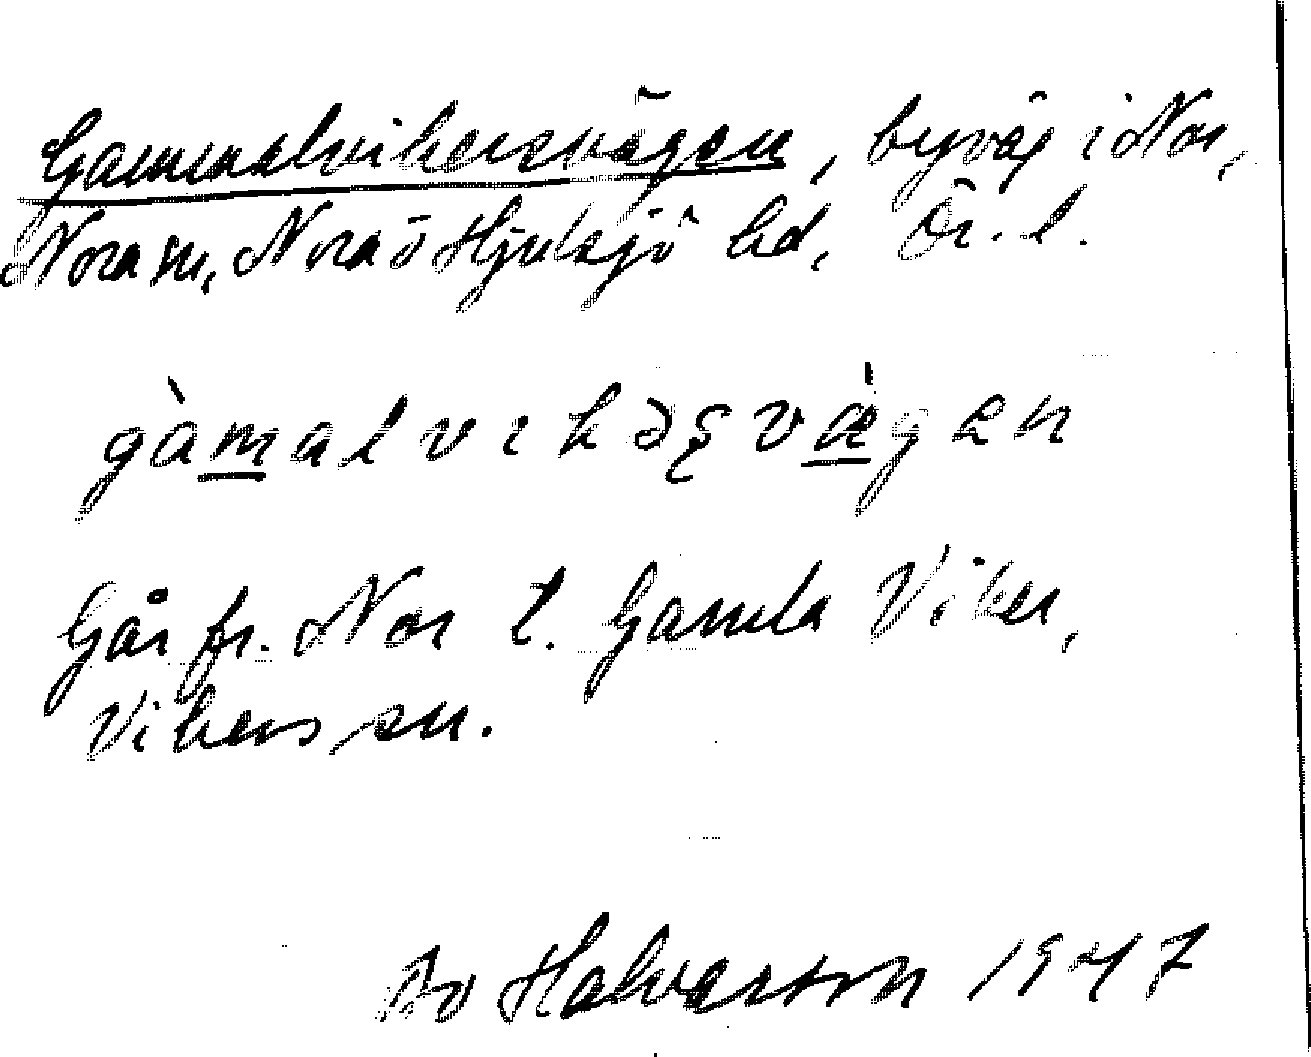 Gammalvikersvägen, byväg i Nor,
Nora sn, Nora o Hjulsjö hd, Ör. l.
gàmalvikəʂvæ̀gen
Går fr. Nor t. Gamla Viker,
Vikers sn.
Bo Halvarson 1947